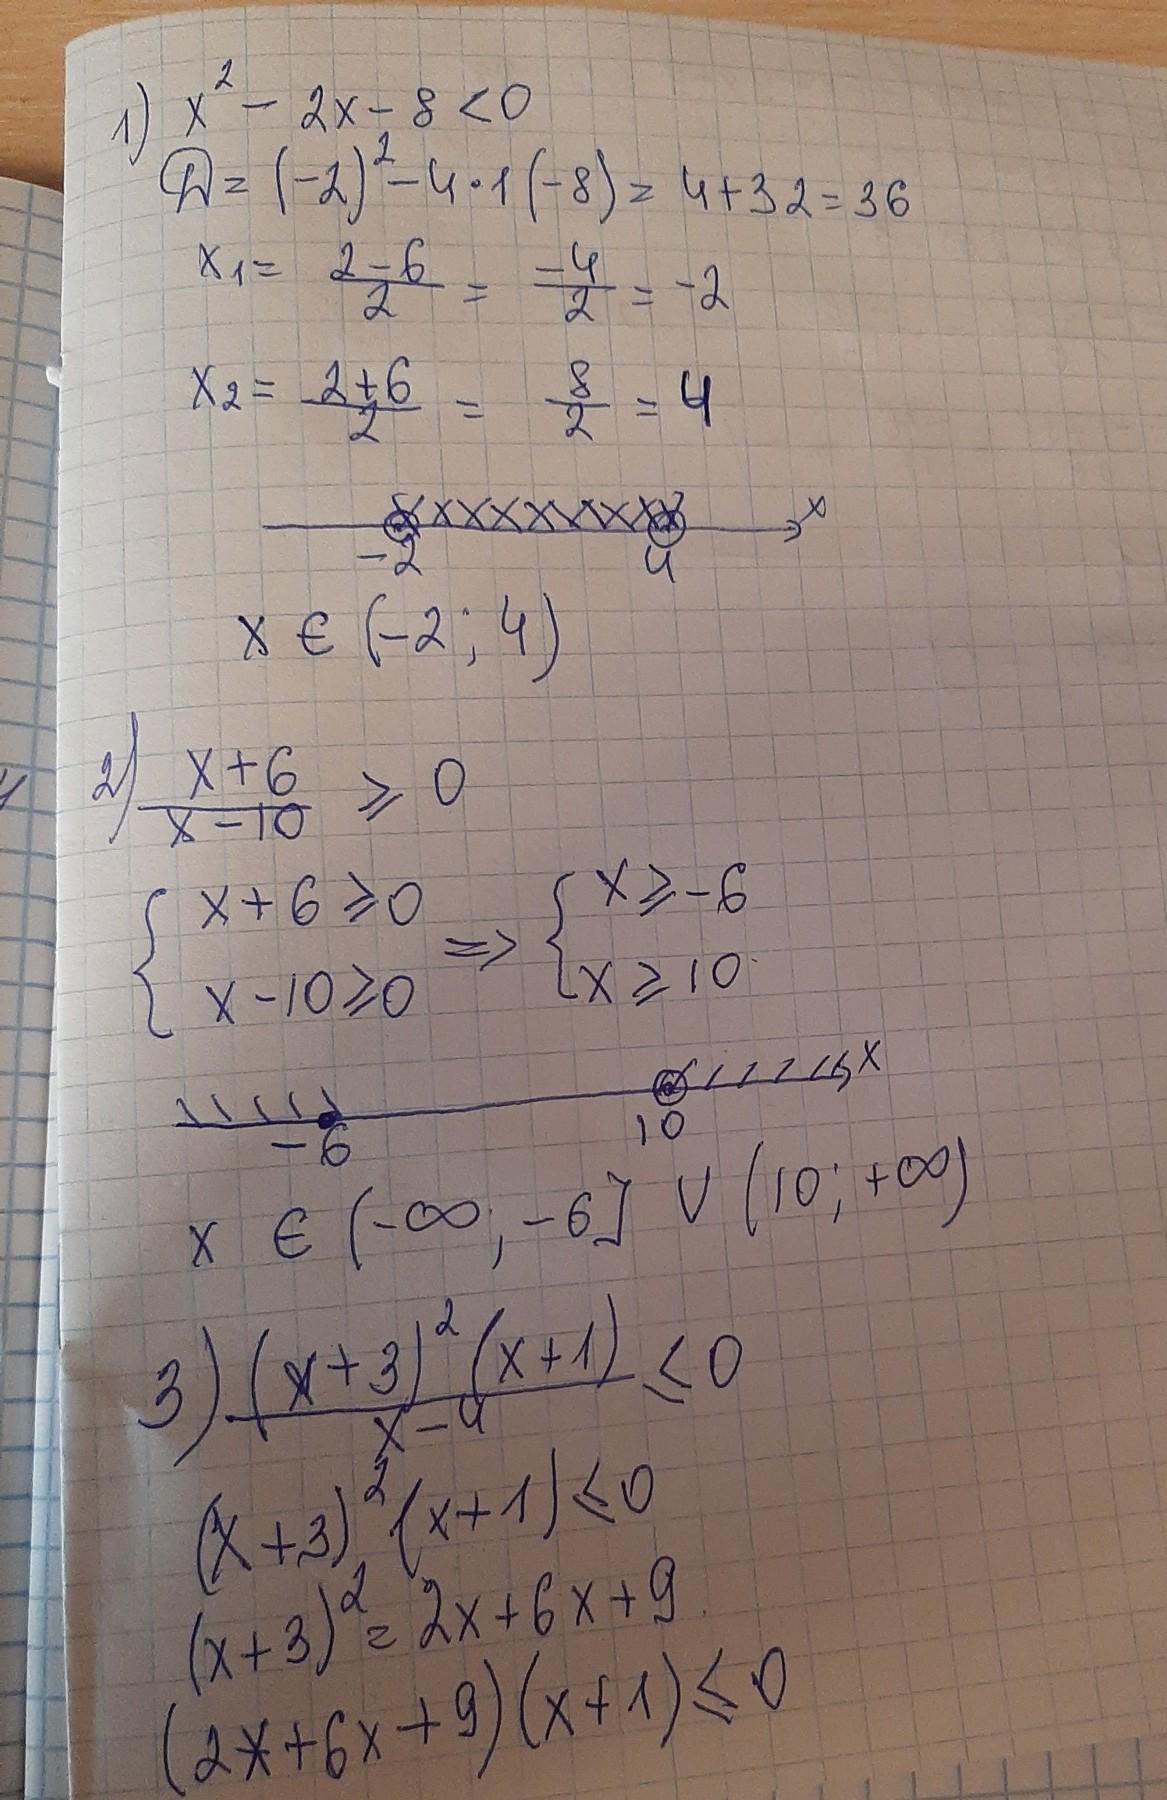 1) x² - 2x - 8 < 0
D = (-2)² - 4·1(-8) = 4+32 = 36
x1 = (2-6)/2 = -4/2 = -2
x2 = (2+6)/2 = 8/2 = 4
x
-2 4
x ∈ (-2; 4)
2) (x+6)/(x-10) ⩾ 0
{ x+6 ⩾ 0 => { x ⩾ -6
x-10 ⩾ 0 x ⩾ 10
x
-6 10
x ∈ (-∞; -6] ∪ (10; +∞)
3) (x+3)²(x+1)/(x-4) ⩽ 0
(x+3)²(x+1) ⩽ 0
(x+3)² = 2x+6x+9
(2x+6x+9)(x+1) ⩽ 0